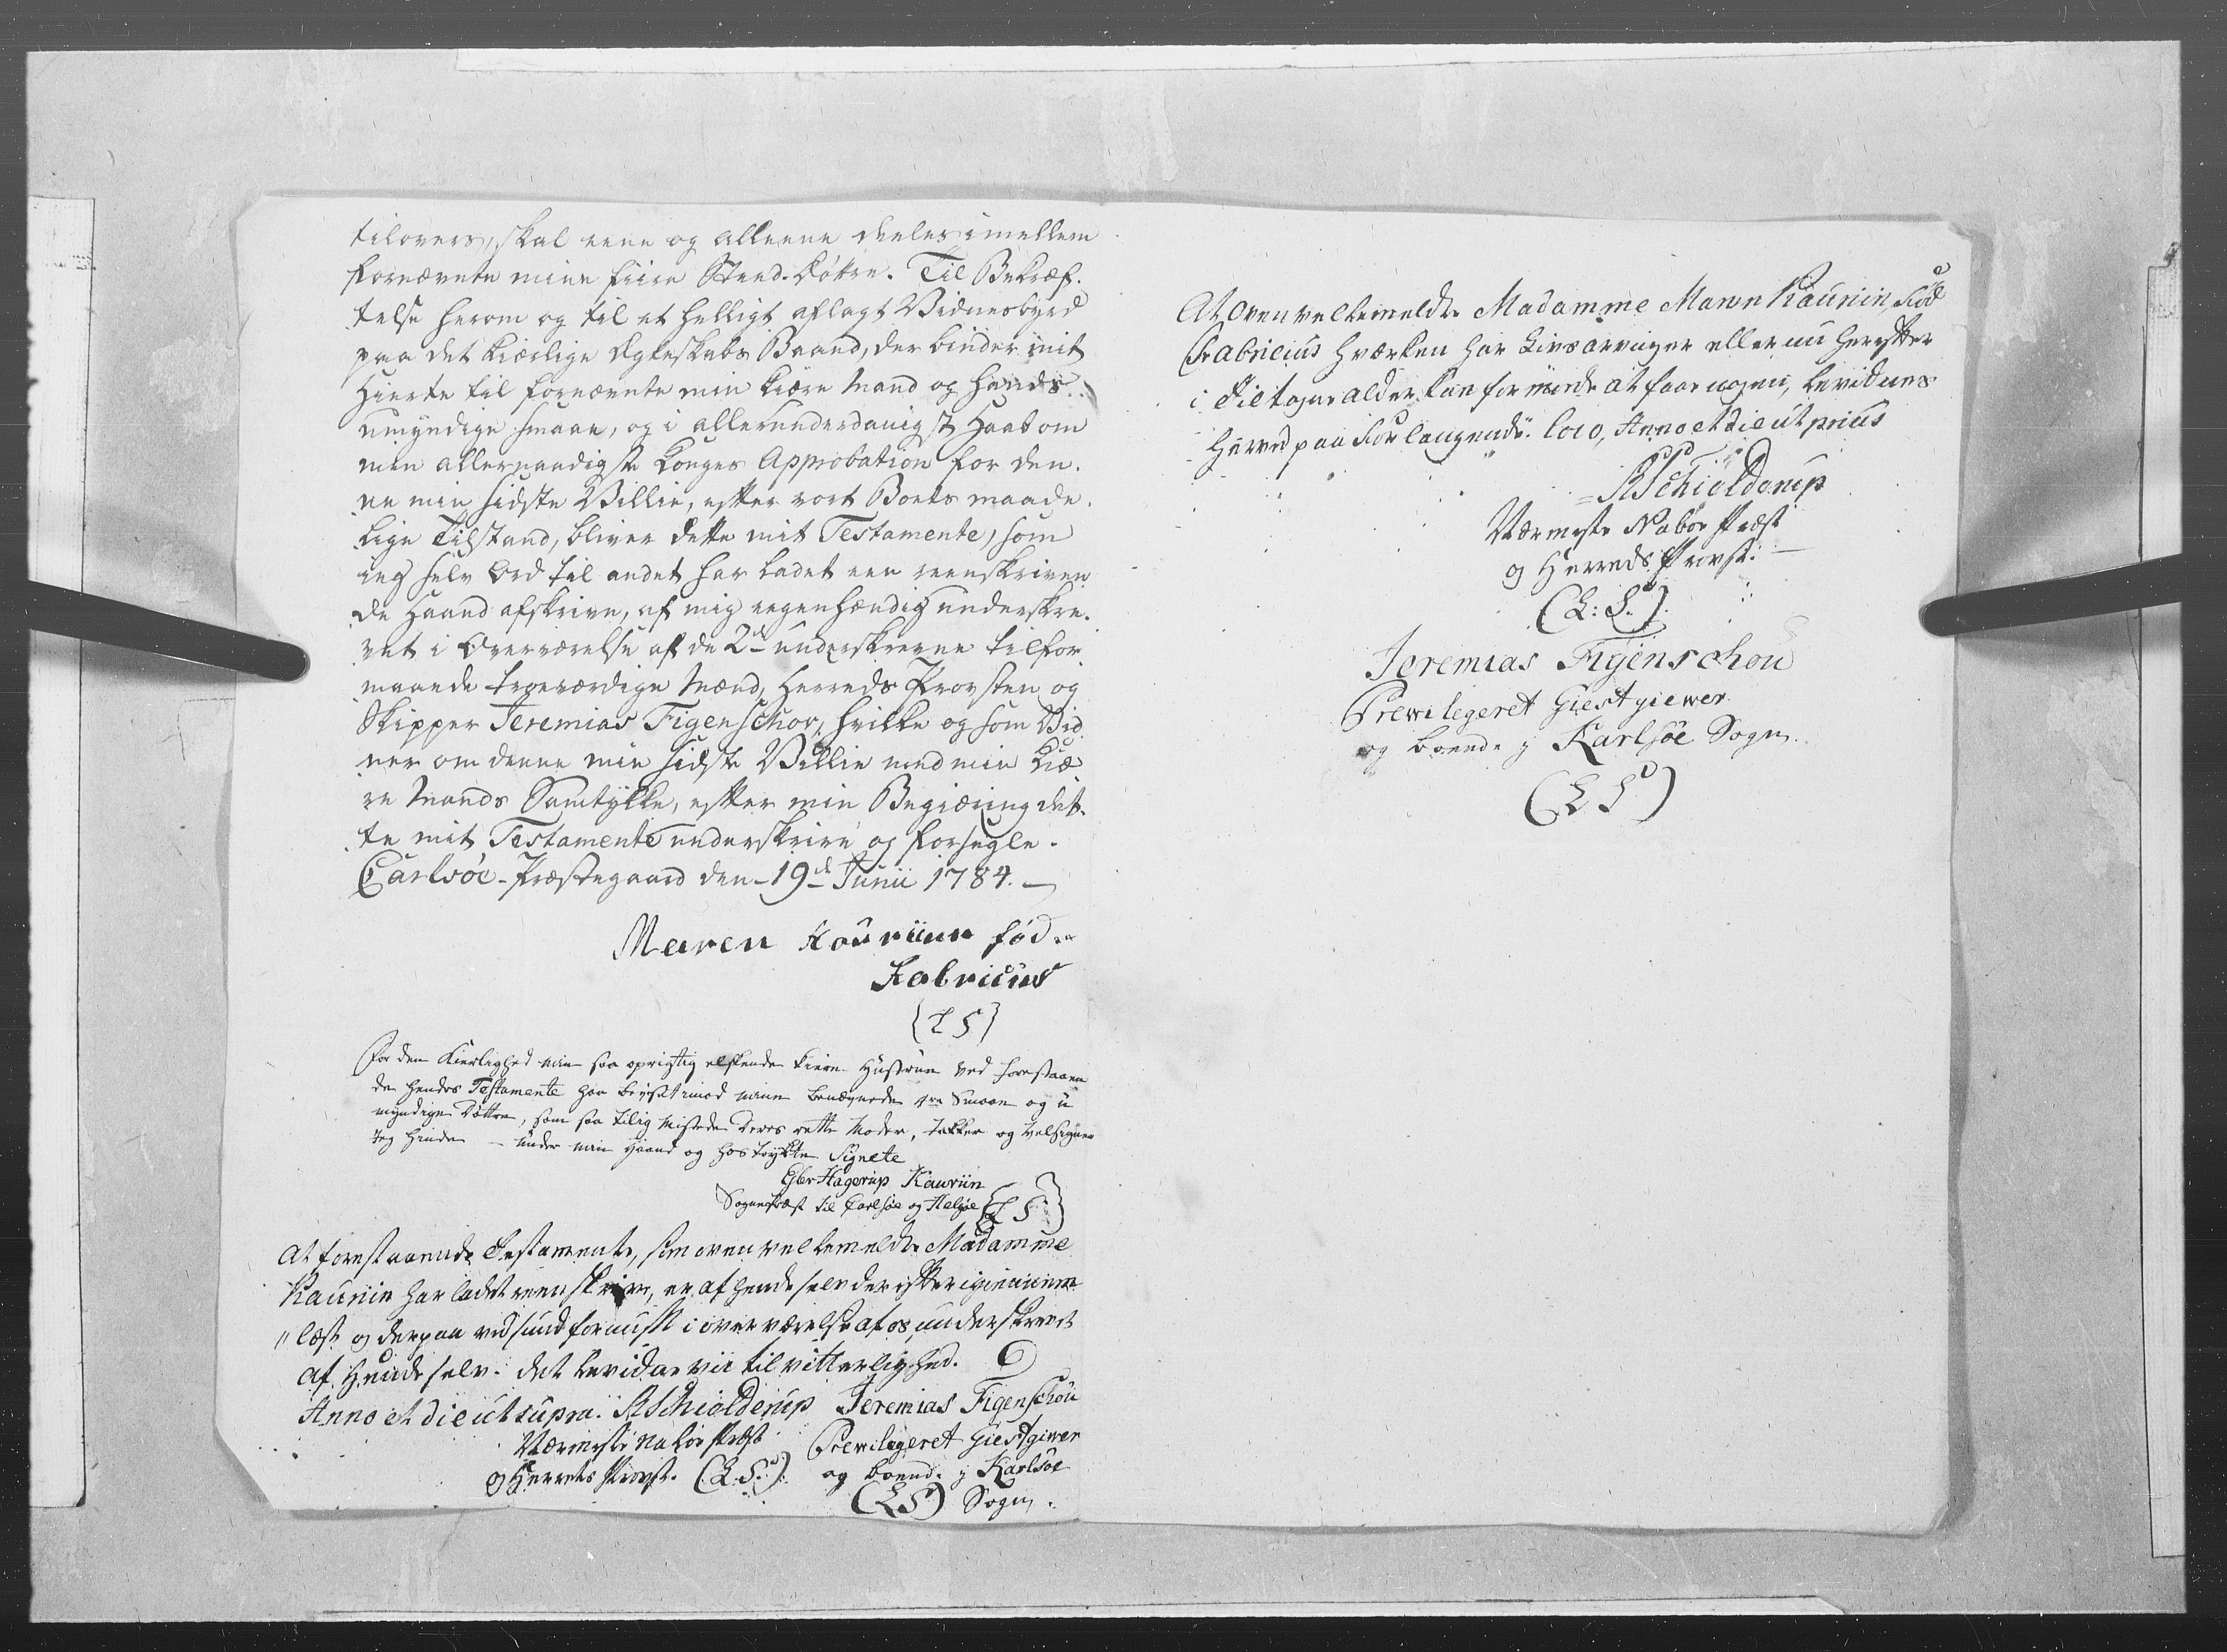 tilovers, skal eene og alleene deeles imellem
fornævnte mine fiire Steed-Døttre. Til Bekræf-
telse herom og til et helligt aflagt Vidnesbyrd
paa det kiærlige Ægteskabs Baand, der binder mit
Hierte til fornævnte min kiære Mand og hands
umyndige smaae, og i allerunderdanigst Haab om
min allernaadigste Konges Approbation for den-
ne min sidste Villie, efter vort Boets maade-
lige Tilstand, bliver dette mit Testamente, som
ieg selv Ord til andet har ladet een reenskriven-
de Haand afskrive, af mig egenhændig underskre-
vet i Overværelse af de 2de underskrevne tilfor-
maaede troeværdige Mænd, Herreds Provsten og
Skipper Jeremias Figenschov, hvilke og som Vid-
ner om denne min sidste Villie med min kiæ-
re Mands Samtykke, efter min Begiæring det-
te mit Testamente underskrive og forsegle.
Carlsöe-Præstegaard den 19de Junii 1784.
Maren Kauriin fød
Fabricius
{L S}
For den Kierlighed min saa oprigtig elskende kiere Hustrue ved forestaaen
de hendes Testamente har beviist imod mine benævnede smaae og u
myndige Döttre, som saa tilig mistede Deres rette Moder, takker og velsigner
Jeg hende under min Haand og hostrykte Signete
Hagerup Kauriin
Sognepræst til Carlsöe og Helgøe {L S}
At forestaaende Testamente, som ovenvelbemeldte Madamme
Kaurin har ladet reenskrive, er af hende selv derefter igiennem-
læst og derpaa ved sund fornuft i overværelse af os, underskrevet
af Hende selv. det bevidner vii til vitterlighed.
Anno et die ut supra. Schielderup Jeremias Figenschou
Nærmeste Naboe Præst Prewilegeret Giestgiwer
og Herrets Provst. (L.S.) og boende j Karlsöe
(L S) Sogn.
At ovenvelbemeldte Madamme Maren Kaurin, fød
Fabricius hværken har Livsarvinger eller nu herefter
i tiltagne alder kan formode at faae nogen, bevidnes
herved paa forlangende. loco, Anno et die ut prius
Schielderup
Nærmeste Naboe Præst
og Herreds Provst.
(L: S.)
Jeremias Figenschou
Prewilegeret Giestgiewer
og boende j Karlsöe Sogn.
(L S)